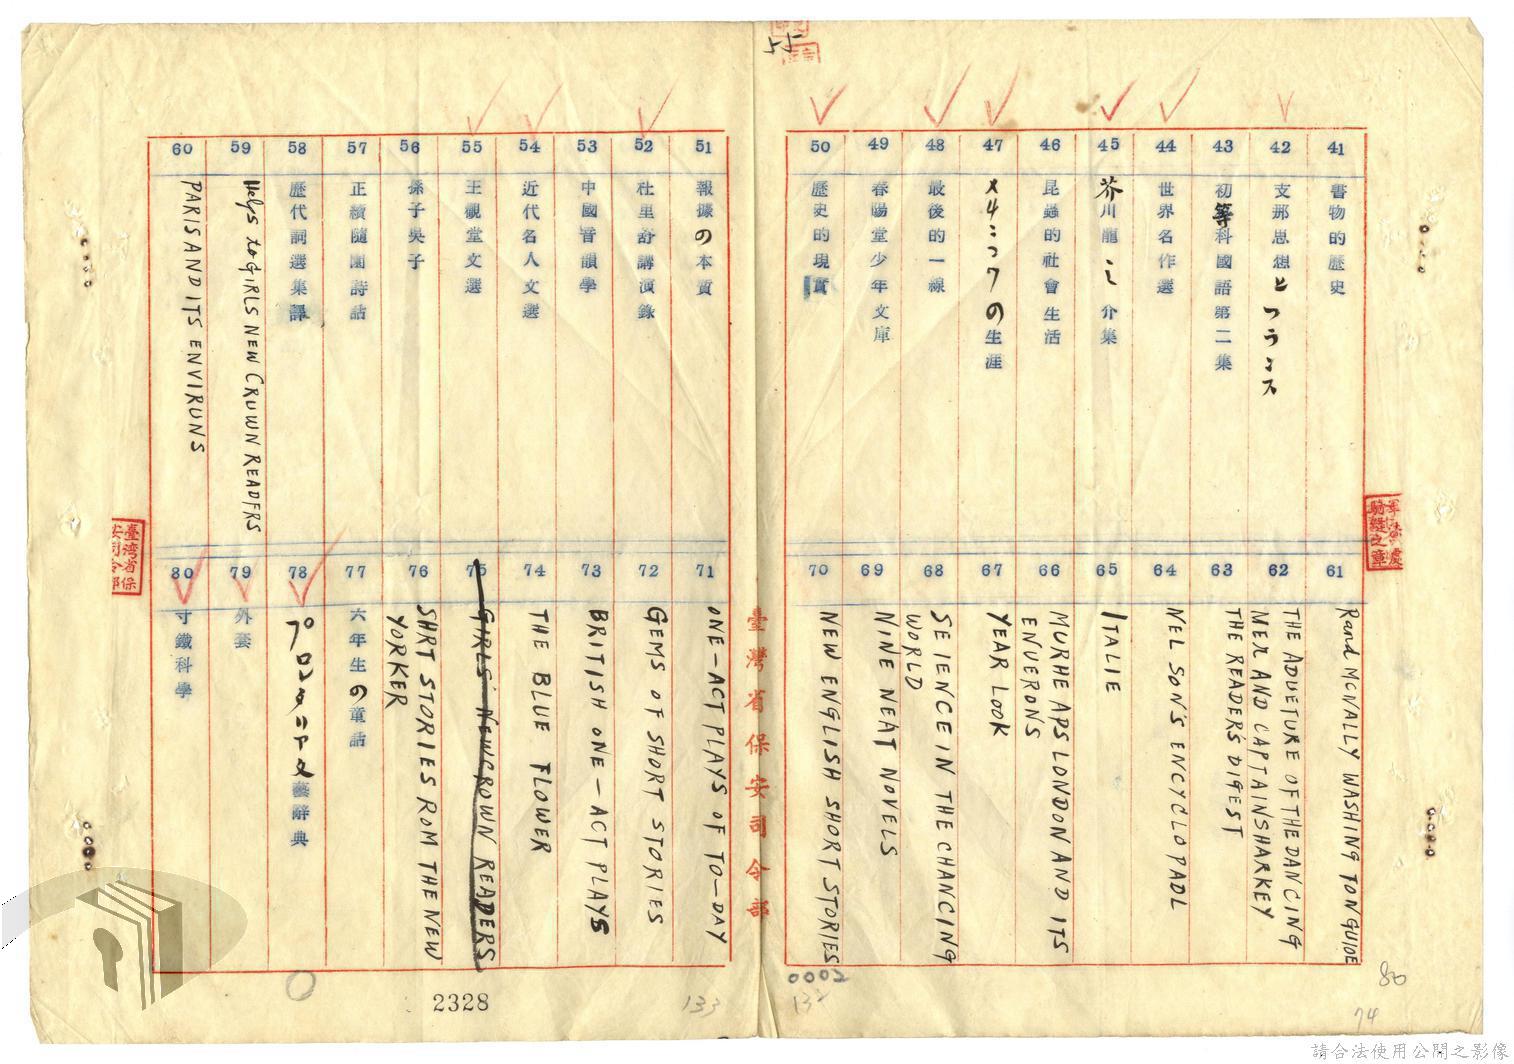 55
41
書物的歷史
42
支那思想とフランス
43
初等科國語第二集
44
世界名作選
45
芥川龍之介集
46
昆蟲的社會生活
47
の生涯
48
最後的一線
49
春陽堂少年文庫
50
歷史的現實
61
Rand MCNALLY WASHING TON GUIDE
62
THE ADUETURE OF THE DANCING
MEN AND CAPTAINSHARKEY
63
THE READER'S DIGEST
64
NEL SON'S ENCYCLOPADL
65
ITALIE
66
MURHE APS LONDON AND ITS
ENUERONS
67
YEAR LOOK
68
SEIENCE IN THE CHANCING
WORLD
69
NINE NEAT NOVELS
70
NEW ENGLISH SHORT STORIES
臺灣省保安司令部
51
報據の本質
52
杜里舒講演錄
53
中國音韻學
54
近代名人文選
55
王觀堂文選
56
孫子吳子
57
正續隨園詩話
58
歷代詞選集譯
59
Helys to GIRLS NEW CRUWN READFRS
60
PARIS AND ITS ENVIRUNS
71
ONE-ACT PLAYS OF TO-DAY
72
GEMS OF SHORT STORIES
73
BRITISH ONE-ACT PLAYS
74
THE BLUE FLOWER
75
GIRLS' NEWCROWN READERS
76
SHRT STORIES ROM THE NEW
YORKER
77
六年生の童話
78
文藝辭典
79
外套
80
寸鐵科學
臺湾省保
安司令部
軍法處
騎縫之章
0002
2328
133
132
80
74
請合法使用公開之影像